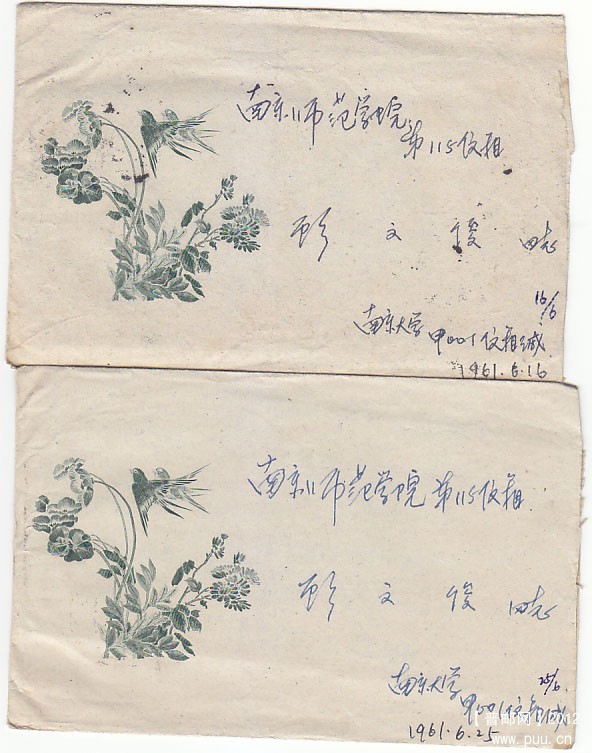 南京师范学院
第115信箱
顾 文 俊 同志
16/6
南京大学 甲001信箱缄
1961.6.16
南京师范学院 第115信箱
顾 文 俊 同志
25/6
南京大学 甲001信箱缄
1961.6.25
www.puu.cn